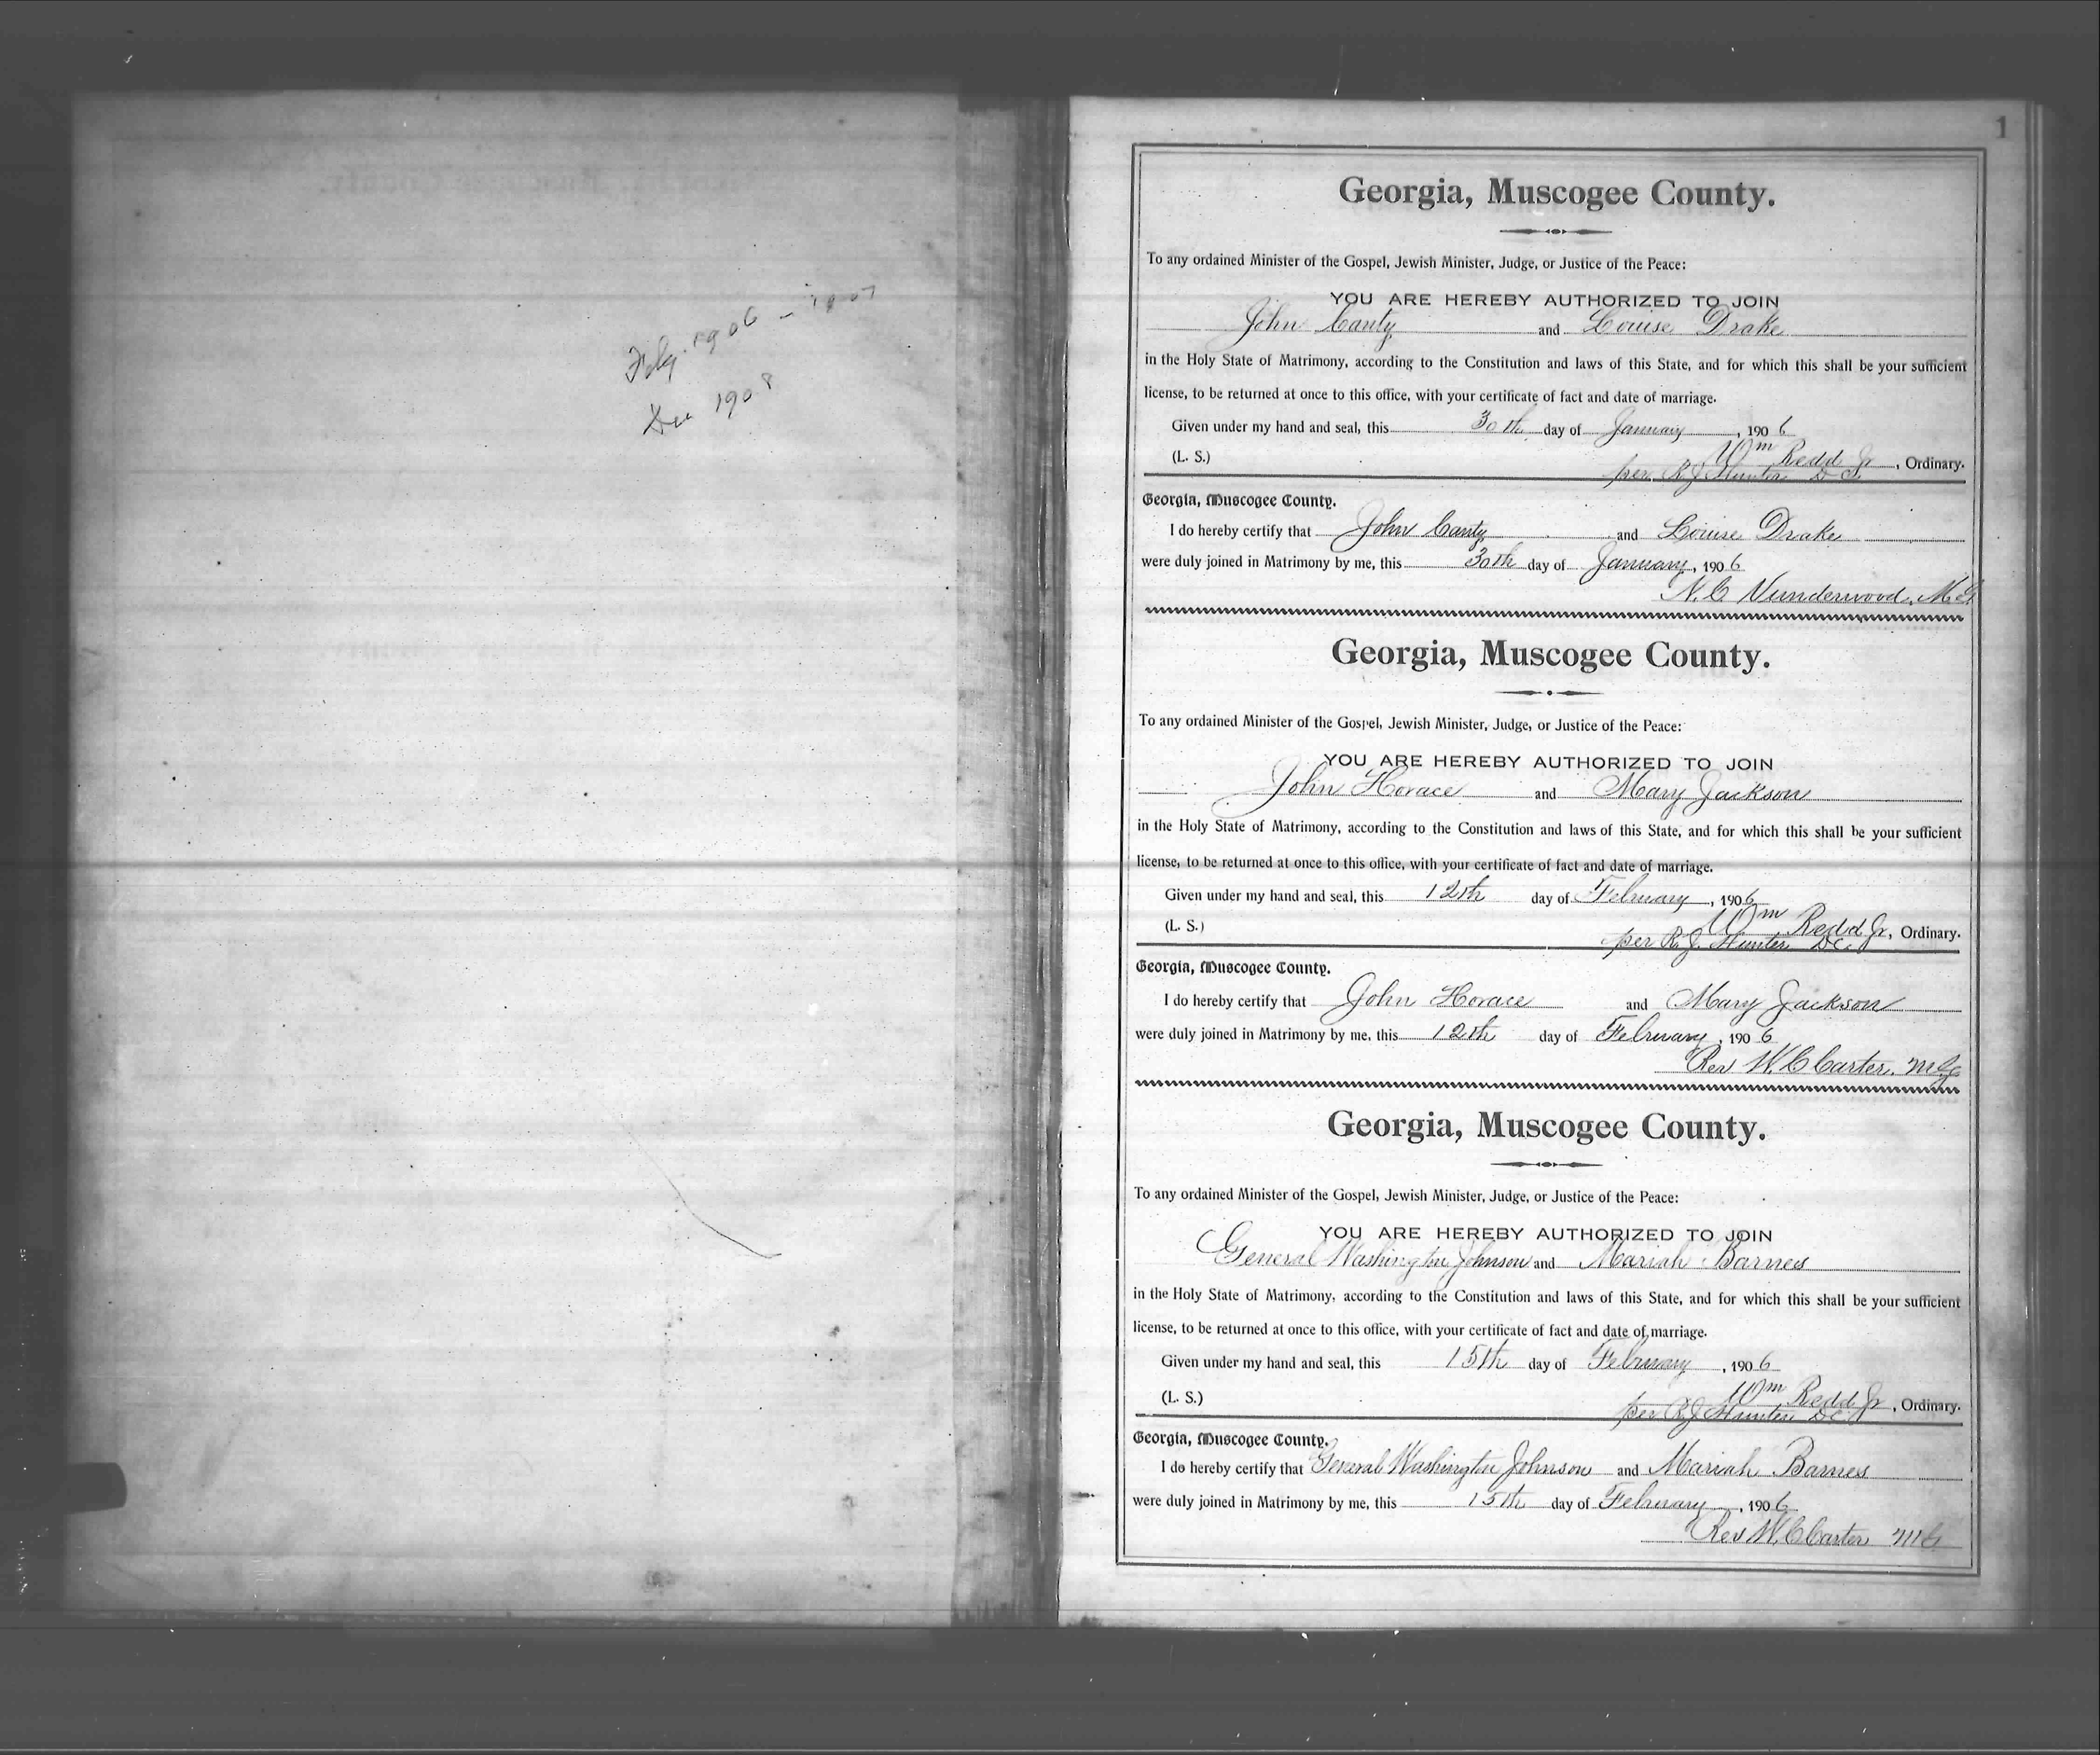 Feby. 1906 - 1907
Dec 1908
1
Georgia, Muscogee County.
To any ordained Minister of the Gospel, Jewish Minister, Judge, or Justice of the Peace:
YOU ARE HEREBY AUTHORIZED TO JOIN
John Canty and Louise Drake
in the Holy State of Matrimony, according to the Constitution and laws of this State, and for which this shall be your sufficient
license, to be returned at once to this office, with your certificate of fact and date of marriage.
Given under my hand and seal, this 30th day of January, 1906
(L. S.) Wm Redd Jr, Ordinary.
per R. J. Hunter D C.
Georgia, Muscogee County.
I do hereby certify that John Canty and Louise Drake
were duly joined in Matrimony by me, this 30th day of January, 1906
N. C. Vunderwood, M G
Georgia, Muscogee County.
To any ordained Minister of the Gospel, Jewish Minister, Judge, or Justice of the Peace:
YOU ARE HEREBY AUTHORIZED TO JOIN
John Horace and Mary Jackson
in the Holy State of Matrimony, according to the Constitution and laws of this State, and for which this shall be your sufficient
license, to be returned at once to this office, with your certificate of fact and date of marriage.
Given under my hand and seal, this 12th day of February, 1906
(L. S.) Wm Redd Jr, Ordinary.
per R. J. Hunter D.C.
Georgia, Muscogee County.
I do hereby certify that John Horace and Mary Jackson
were duly joined in Matrimony by me, this 12th day of February, 1906
Rev W. C Carter. M G
Georgia, Muscogee County.
To any ordained Minister of the Gospel, Jewish Minister, Judge, or Justice of the Peace:
YOU ARE HEREBY AUTHORIZED TO JOIN
General Washington Johnson and Mariah Barnes
in the Holy State of Matrimony, according to the Constitution and laws of this State, and for which this shall be your sufficient
license, to be returned at once to this office, with your certificate of fact and date of marriage.
Given under my hand and seal, this 15th day of February, 1906
(L. S.) Wm Redd Jr, Ordinary.
per R. J Hunter D.C.
Georgia, Muscogee County.
I do hereby certify that General Washington Johnson and Mariah Barnes
were duly joined in Matrimony by me, this 15th day of February, 1906
Rev W. C Carter M G